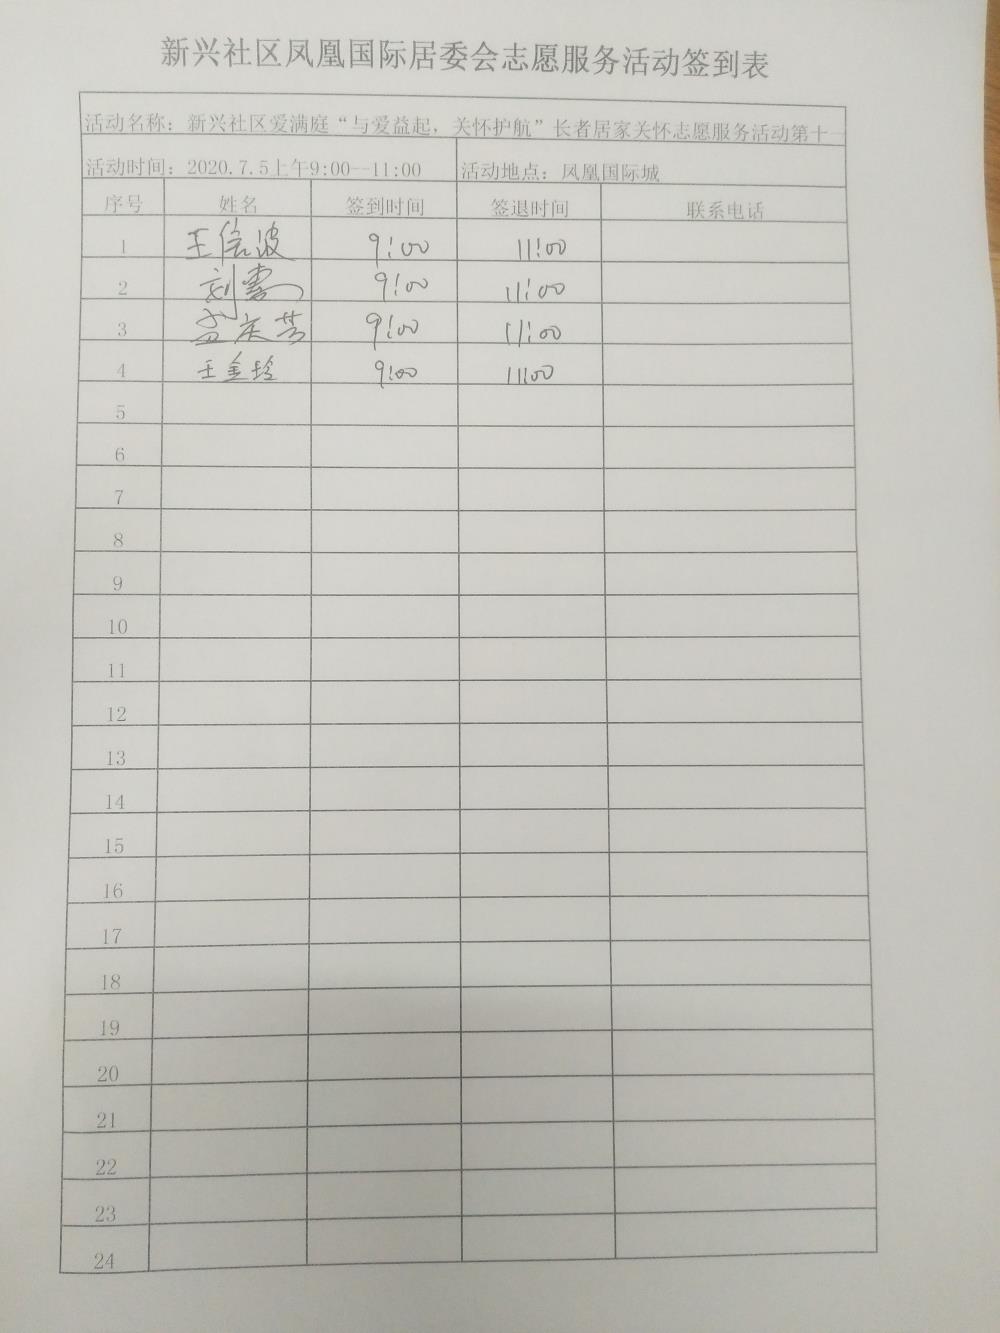 新兴社区凤凰国际居委会志愿服务活动签到表
活动名称：新兴社区爱满庭“与爱益起，关怀护航”长者居家关怀志愿服务活动第十一
活动时间：2020.7.5上午9:00--11:00 活动地点：凤凰国际城
序号 姓名 签到时间 签退时间 联系电话
1 王信波 9:00 11:00
2 刘 9:00 11:00
3 孟庆芸 9:00 11:00
4 王金玲 9:00 11:00
5
6
7
8
9
10
11
12
13
14
15
16
17
18
19
20
21
22
23
24